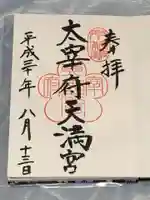 奉拝
太宰府天満宮
平成三十年 八月 十三日